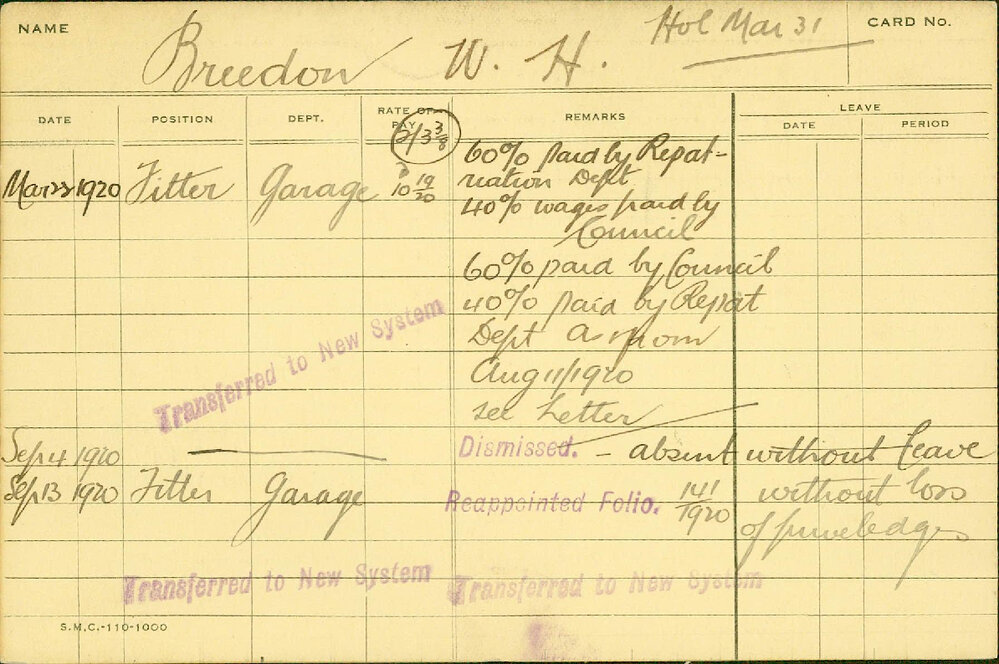 NAME
Breedon W. H.
Hol Mar 31
CARD No.
DATE POSITION DEPT. RATE OF PAY REMARKS LEAVE
DATE PERIOD
2/3 3/8
60% paid by Repat-
Mar 22 1920 Fitter Garage 10 19/20 riation Dept
40% wages paid by
Council
60% paid by Council
40% paid by Repat
Dept as from
Aug 11/1920
see Letter
Transferred to New System
Sep 4 1920 — Dismissed. - absent without leave
Sep 13 1920 Fitter Garage Reappointed Folio. 141/1920 without loss
of priveledges
Transferred to New System Transferred to New System
S.M.C.-110-1000